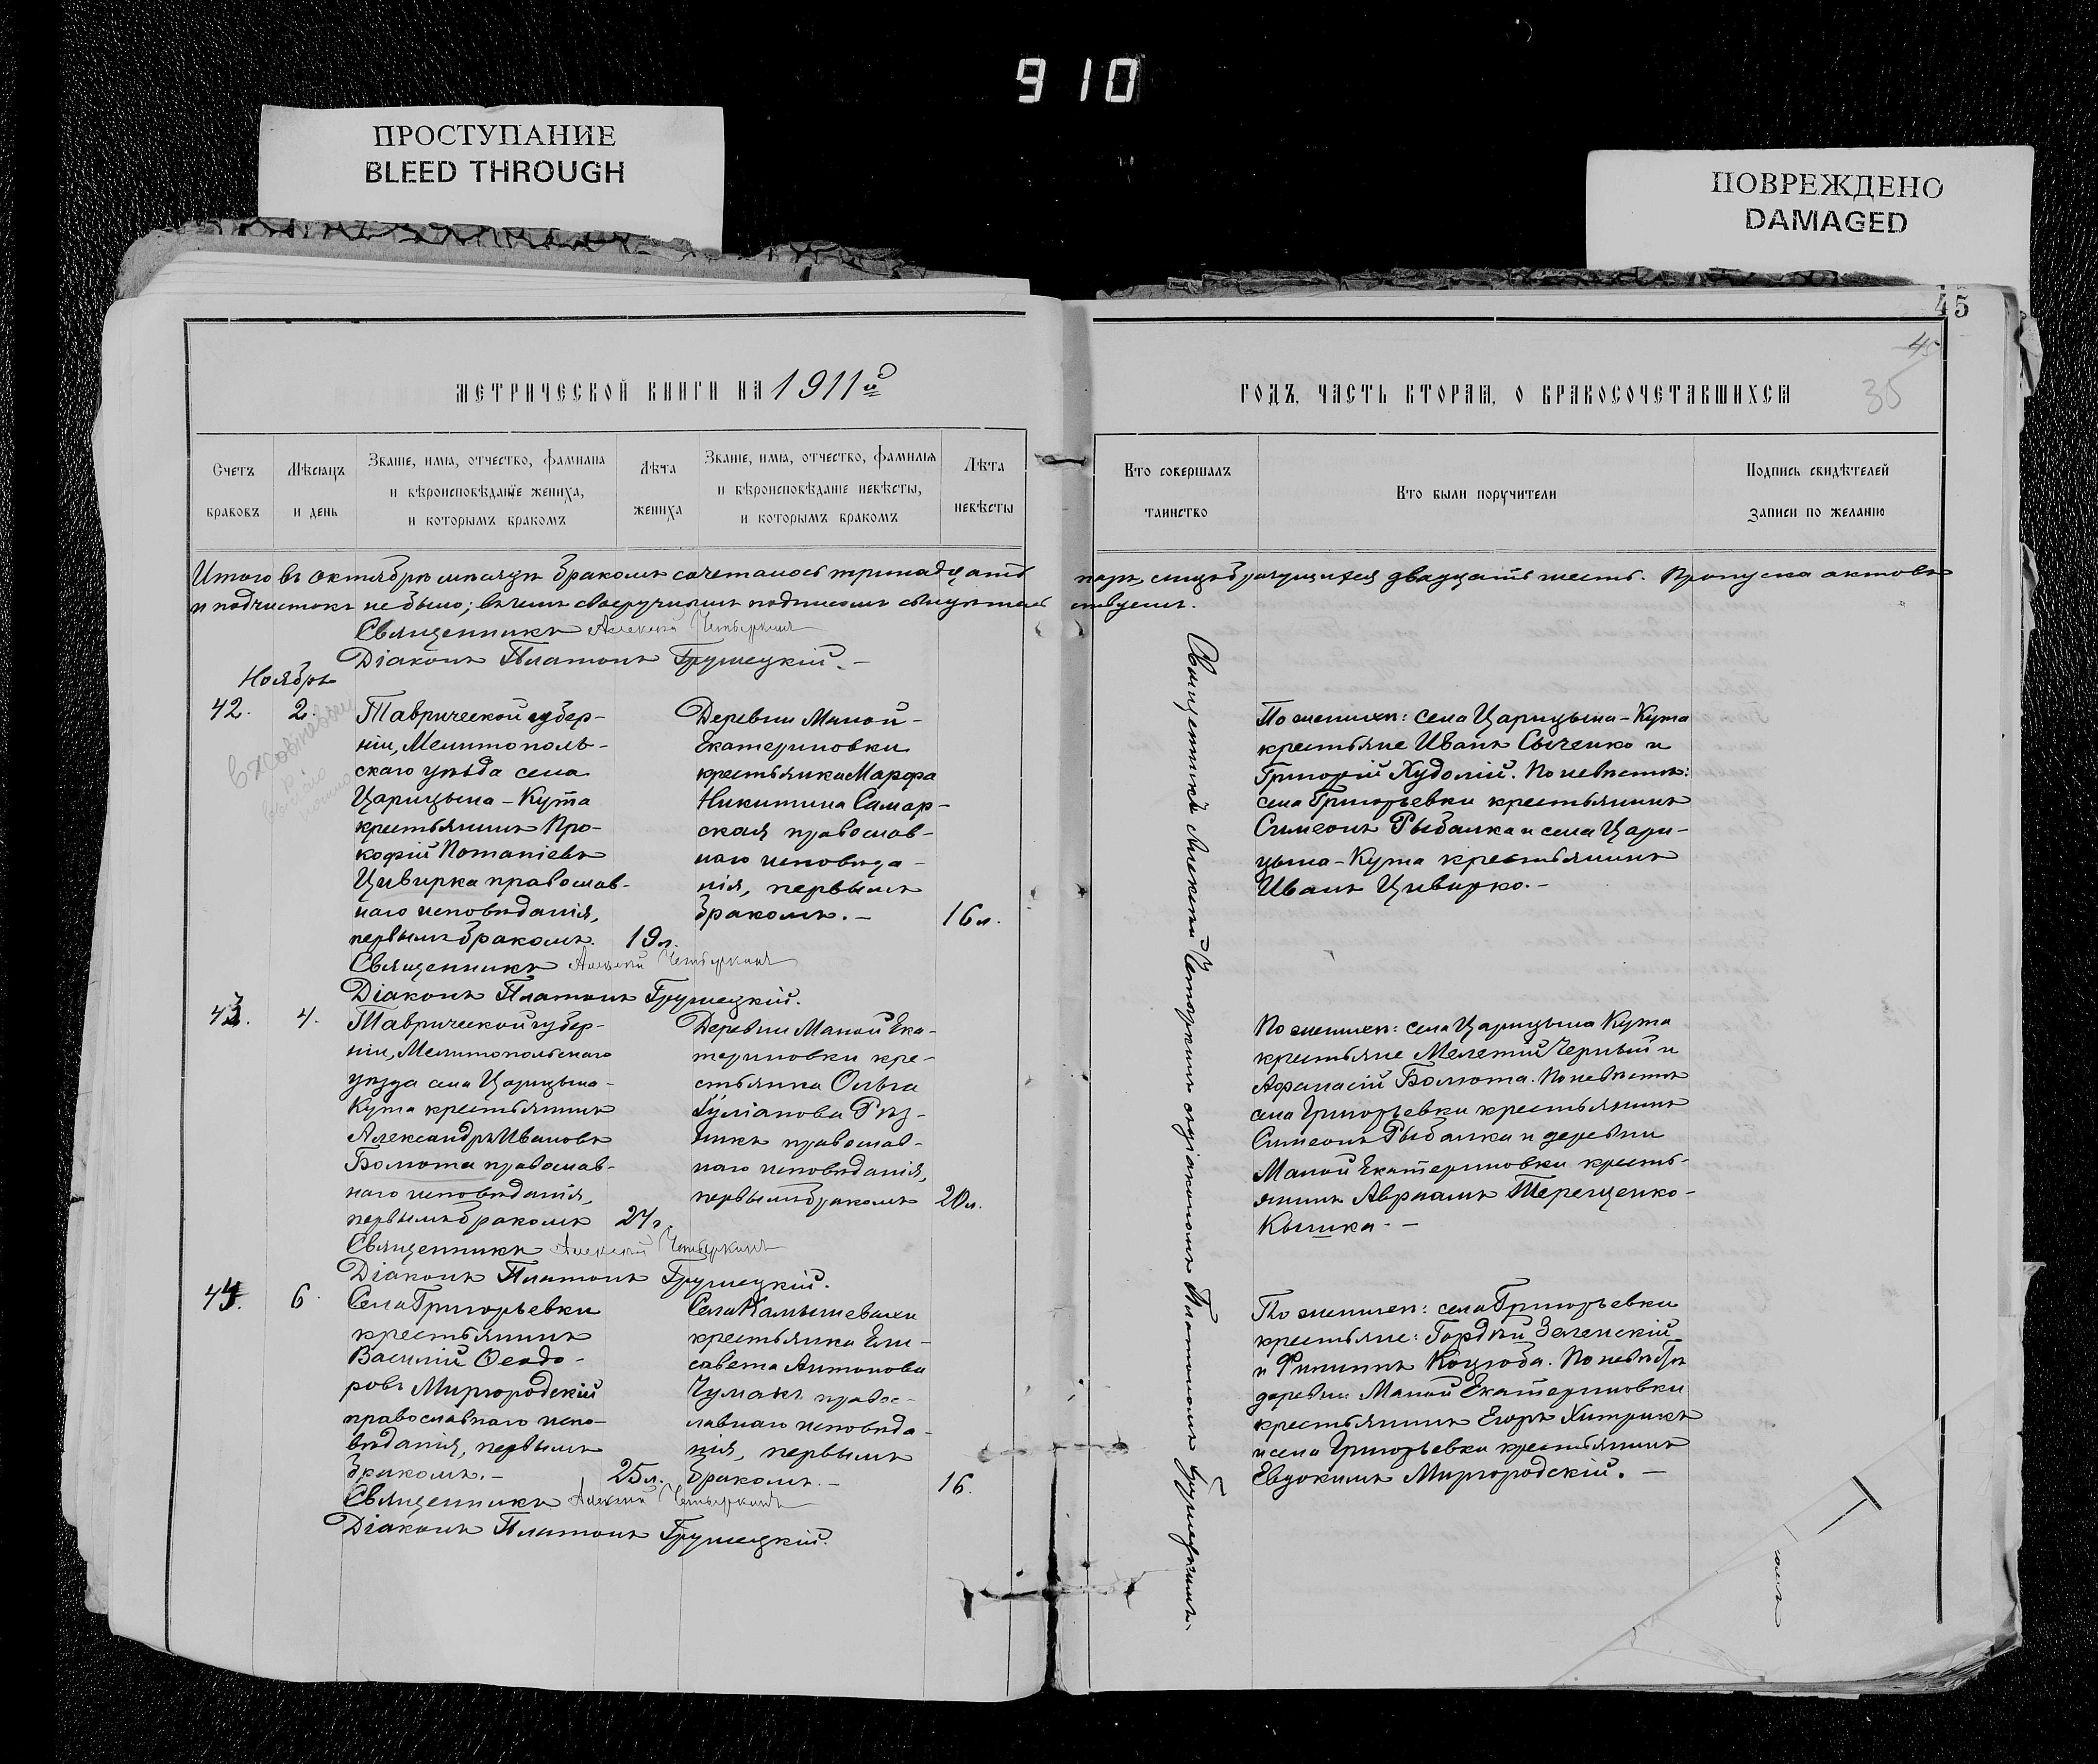 910
ПРОСТУПАНИЕ
BLEED THROUGH
ПОВРЕЖДЕНО
DAMAGED
45
45
35
МЕТРИЧЕСКОЙ КНИГИ НА 1911й
ГОДЪ, ЧАСТЬ ВТОРАЯ, О БРАКОСОЧЕТАВШИХСЯ
Счетъ
браковъ
Мѣсяцъ
и день
Званіе, имя, отчество, фамилія
и вѣроисповѣданіе жениха,
и которымъ бракомъ
Лѣта
жениха
Званіе, имя, отчество, фамилія
и вѣроисповѣданіе невѣсты,
и которымъ бракомъ
Лѣта
невѣсты
Кто совершалъ
таинство
Кто были поручители
Подпись свидѣтелей
записи по желанію
Итого въ октябрѣ мѣсяцѣ бракомъ сочеталось тринадцать паръ, лицъ брачущихся двадцать шесть. Пропуска актовъ
и подчистокъ не было; въ чемъ своеручнымъ подписомъ свидѣтельствуемъ.
Священникъ Алексій Четыркинъ
Діаконъ Платонъ Грушецкій. —
Ноябрь
42.
2.
Таврической губер-
ніи, Мелитополь-
скаго уѣзда села
Царицына-Кута
крестьянинъ Про-
кофій Потапіевъ
Цивирка православ-
наго исповѣданія,
первымъ бракомъ.
19 л.
Деревни Малой-
Екатериновки
крестьянка Марфа
Никитина Самар-
ская православ-
наго исповѣда-
нія, первымъ
бракомъ. —
16 л.
По женихѣ: села Царицына-Кута
крестьяне Иванъ Сыченко и
Григорій Худолій. По невѣстѣ:
села Григорьевки крестьянинъ
Симеонъ Рыбалка и села Цари-
цына-Кута крестьянинъ
Иванъ Цивирко. —
Священникъ Алексій Четыркинъ
Діаконъ Платонъ Грушецкій.
43.
4.
Таврической губер-
ніи, Мелитопольскаго
уѣзда села Царицына-
Кута крестьянинъ
Александръ Ивановъ
Болюта православ-
наго исповѣданія,
первымъ бракомъ
Деревни Малой Ека-
териновки кре-
стьянка Ольга
Іуліанова Рѣз-
никъ православ-
наго исповѣданія,
первымъ бракомъ
20 л.
По женихѣ: села Царицына Кута
крестьяне Мелетій Черный и
Афанасій Болюта. По невѣстѣ
села Григорьевки крестьянинъ
Симеонъ Рыбалка и деревни
Малой Екатериновки кресть-
янинъ Авраамъ Терещенко-
Священникъ Алексій Четыркинъ
Діаконъ Платонъ Грушецкій.
44.
6.
Села Григорьевки
крестьянинъ
Василій Ѳеодо-
ровъ Миргородскій
православнаго испо-
вѣданія, первымъ
бракомъ. —
25 л.
Села Камышевахи
крестьянка Ели-
савета Антонова
Чумакъ правос-
лавнаго исповѣда-
нія, первымъ
бракомъ. —
16.
По женихѣ: села Григорьевки
крестьяне: Гордѣй Зеленскій
и Филиппъ Коцюба. По невѣстѣ
деревни Малой Екатериновки
крестьянинъ Егоръ Хитрикъ
и села Григорьевки крестьянинъ
Евдокимъ Миргородскій. —
Священникъ Алексій Четыркинъ
Діаконъ Платонъ Грушецкій.
Священникъ Алексій Четыркинъ съ діакономъ Платономъ Грушецкимъ.